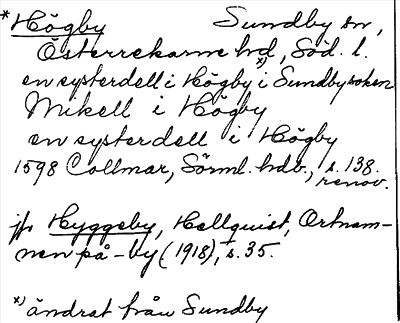 * Högby Sundby sn,
Österrekarne hd, Söd. l.
en systerdell i Högby i *) Sundby soken
Mikell i Högby
en systerdell i Högby
1598 Collmar, Sörml. hdb., s. 138.
renov.
jfr Hyggeby, Hellquist, Ortnam-
nen på -by (1918), s. 35.
*) ändrat från Sundby